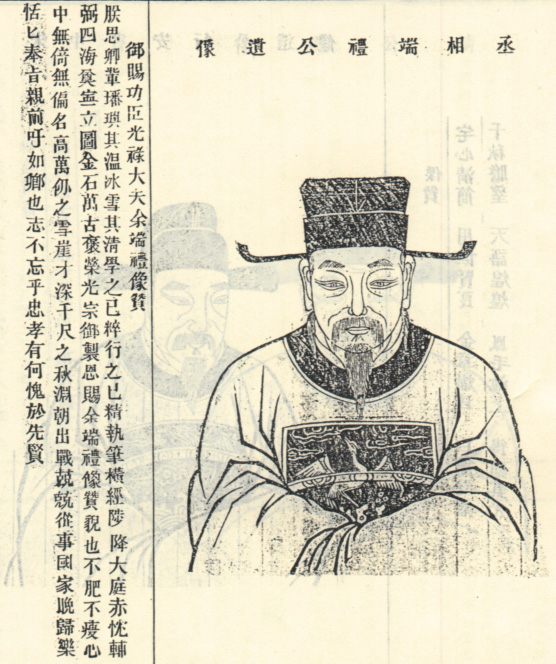 丞相端禮公遺像
御賜功臣光祿大夫余端禮像贊
朕思卿輩璠璵其溫冰雪其清學之已粹行之已精執筆橫經陟降大庭赤忱輔
弼四海奠寧立圖金石萬古褒榮光宗御製恩賜余端禮像贊貌也不肥不瘦心
中無倚無偏名高萬仞之雪崖才深千尺之秋淵朝出戰兢兢從事國家晚歸樂
恬匕奉旨親前吁如鄉也志不忘乎忠孝有何愧於先賢